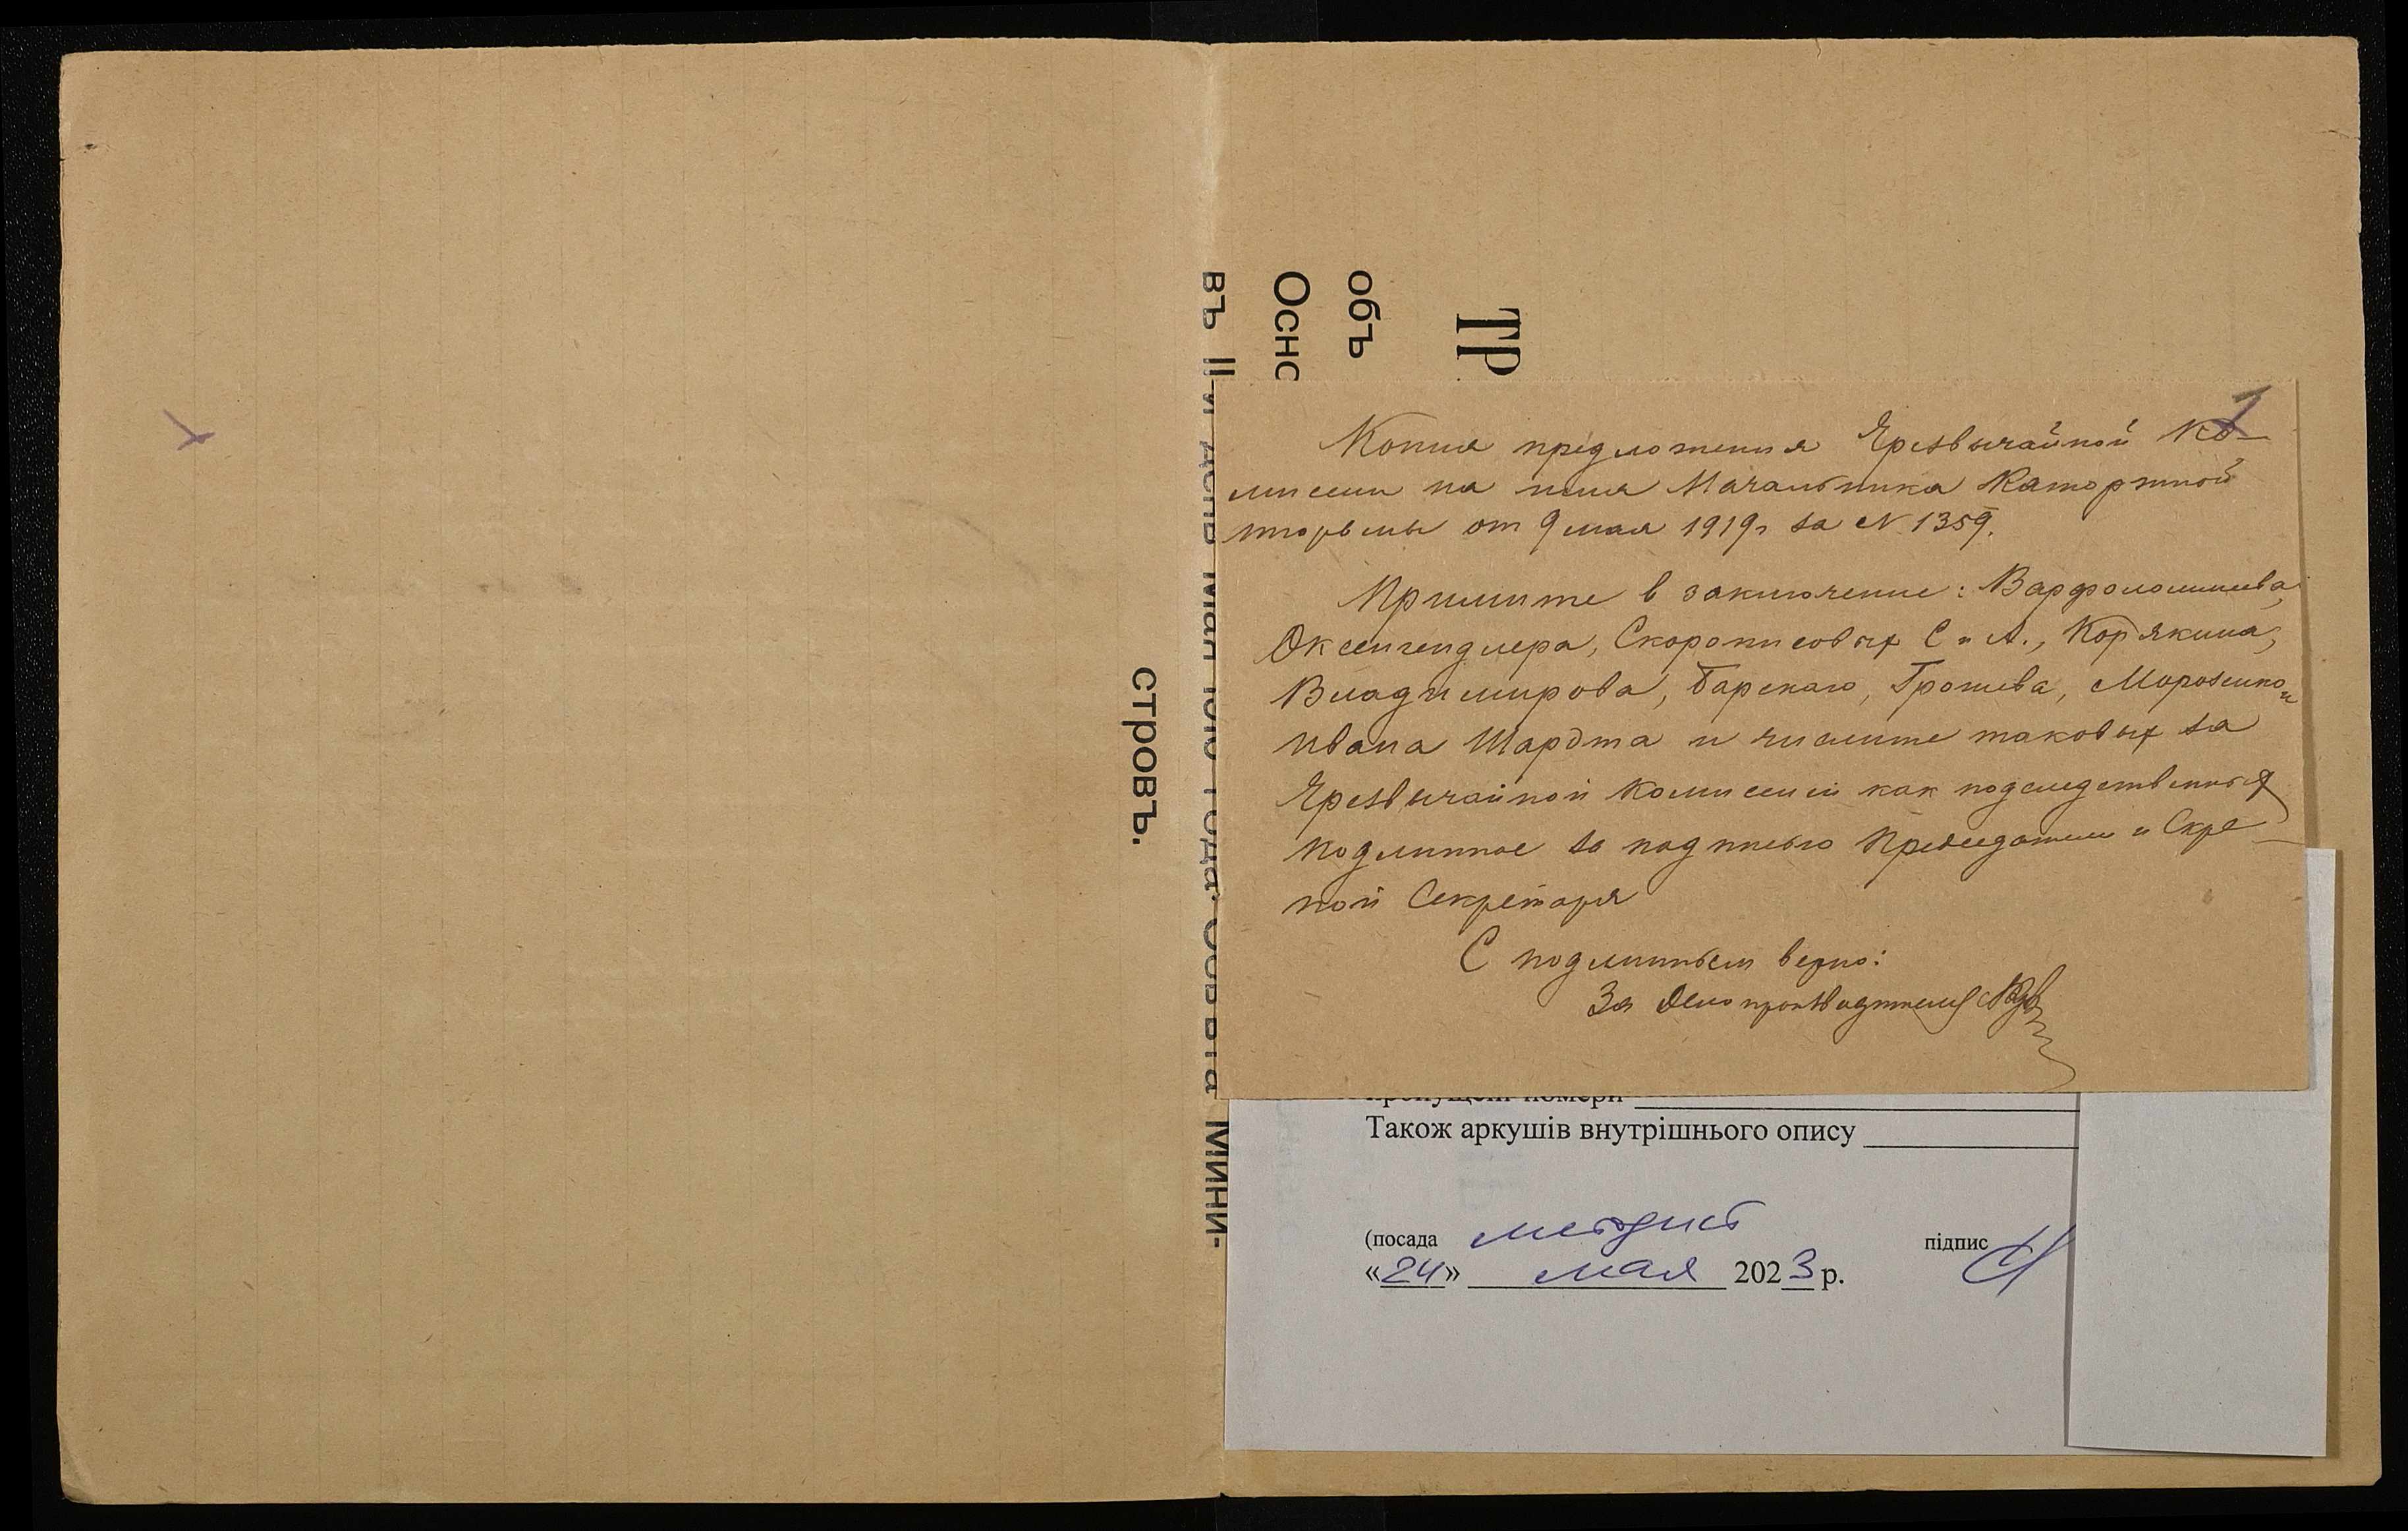 ТР
объ
Осно
въ II-й день Мая 1910 года. Совѣта Мини-
стровъ.
1
Копия предложения Чрезвычайной Ко-
миссии на имя Начальника Каторжной
тюрьмы от 9 мая 1919 г за № 1359.
Примите в заключение: Варфоломеева,
Оксенгендлера, Скорописовых С и А., Корякина,
Владимирова, Барскаго, Грошева, Морозенко и
Ивана Шардта и числите таковых за
Чрезвычайной Комиссией как подследственных
подлинное за подписью Председателя и Скре-
пой Секретаря
С подлинным верно:
За Делопроизводителя
пропущені номери
Також аркушів внутрішнього опису
(посада методист підпис
«24» мая 2023 р.